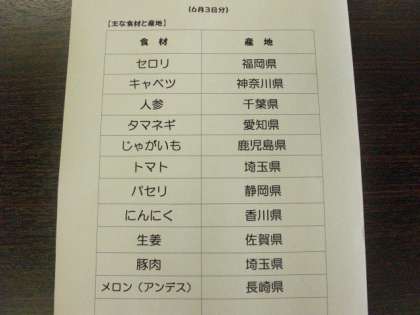 (6月3日分)
【主な食材と産地】
食 材 産 地
セロリ 福岡県
キャベツ 神奈川県
人参 千葉県
タマネギ 愛知県
じゃがいも 鹿児島県
トマト 埼玉県
パセリ 静岡県
にんにく 香川県
生姜 佐賀県
豚肉 埼玉県
メロン（アンデス） 長崎県